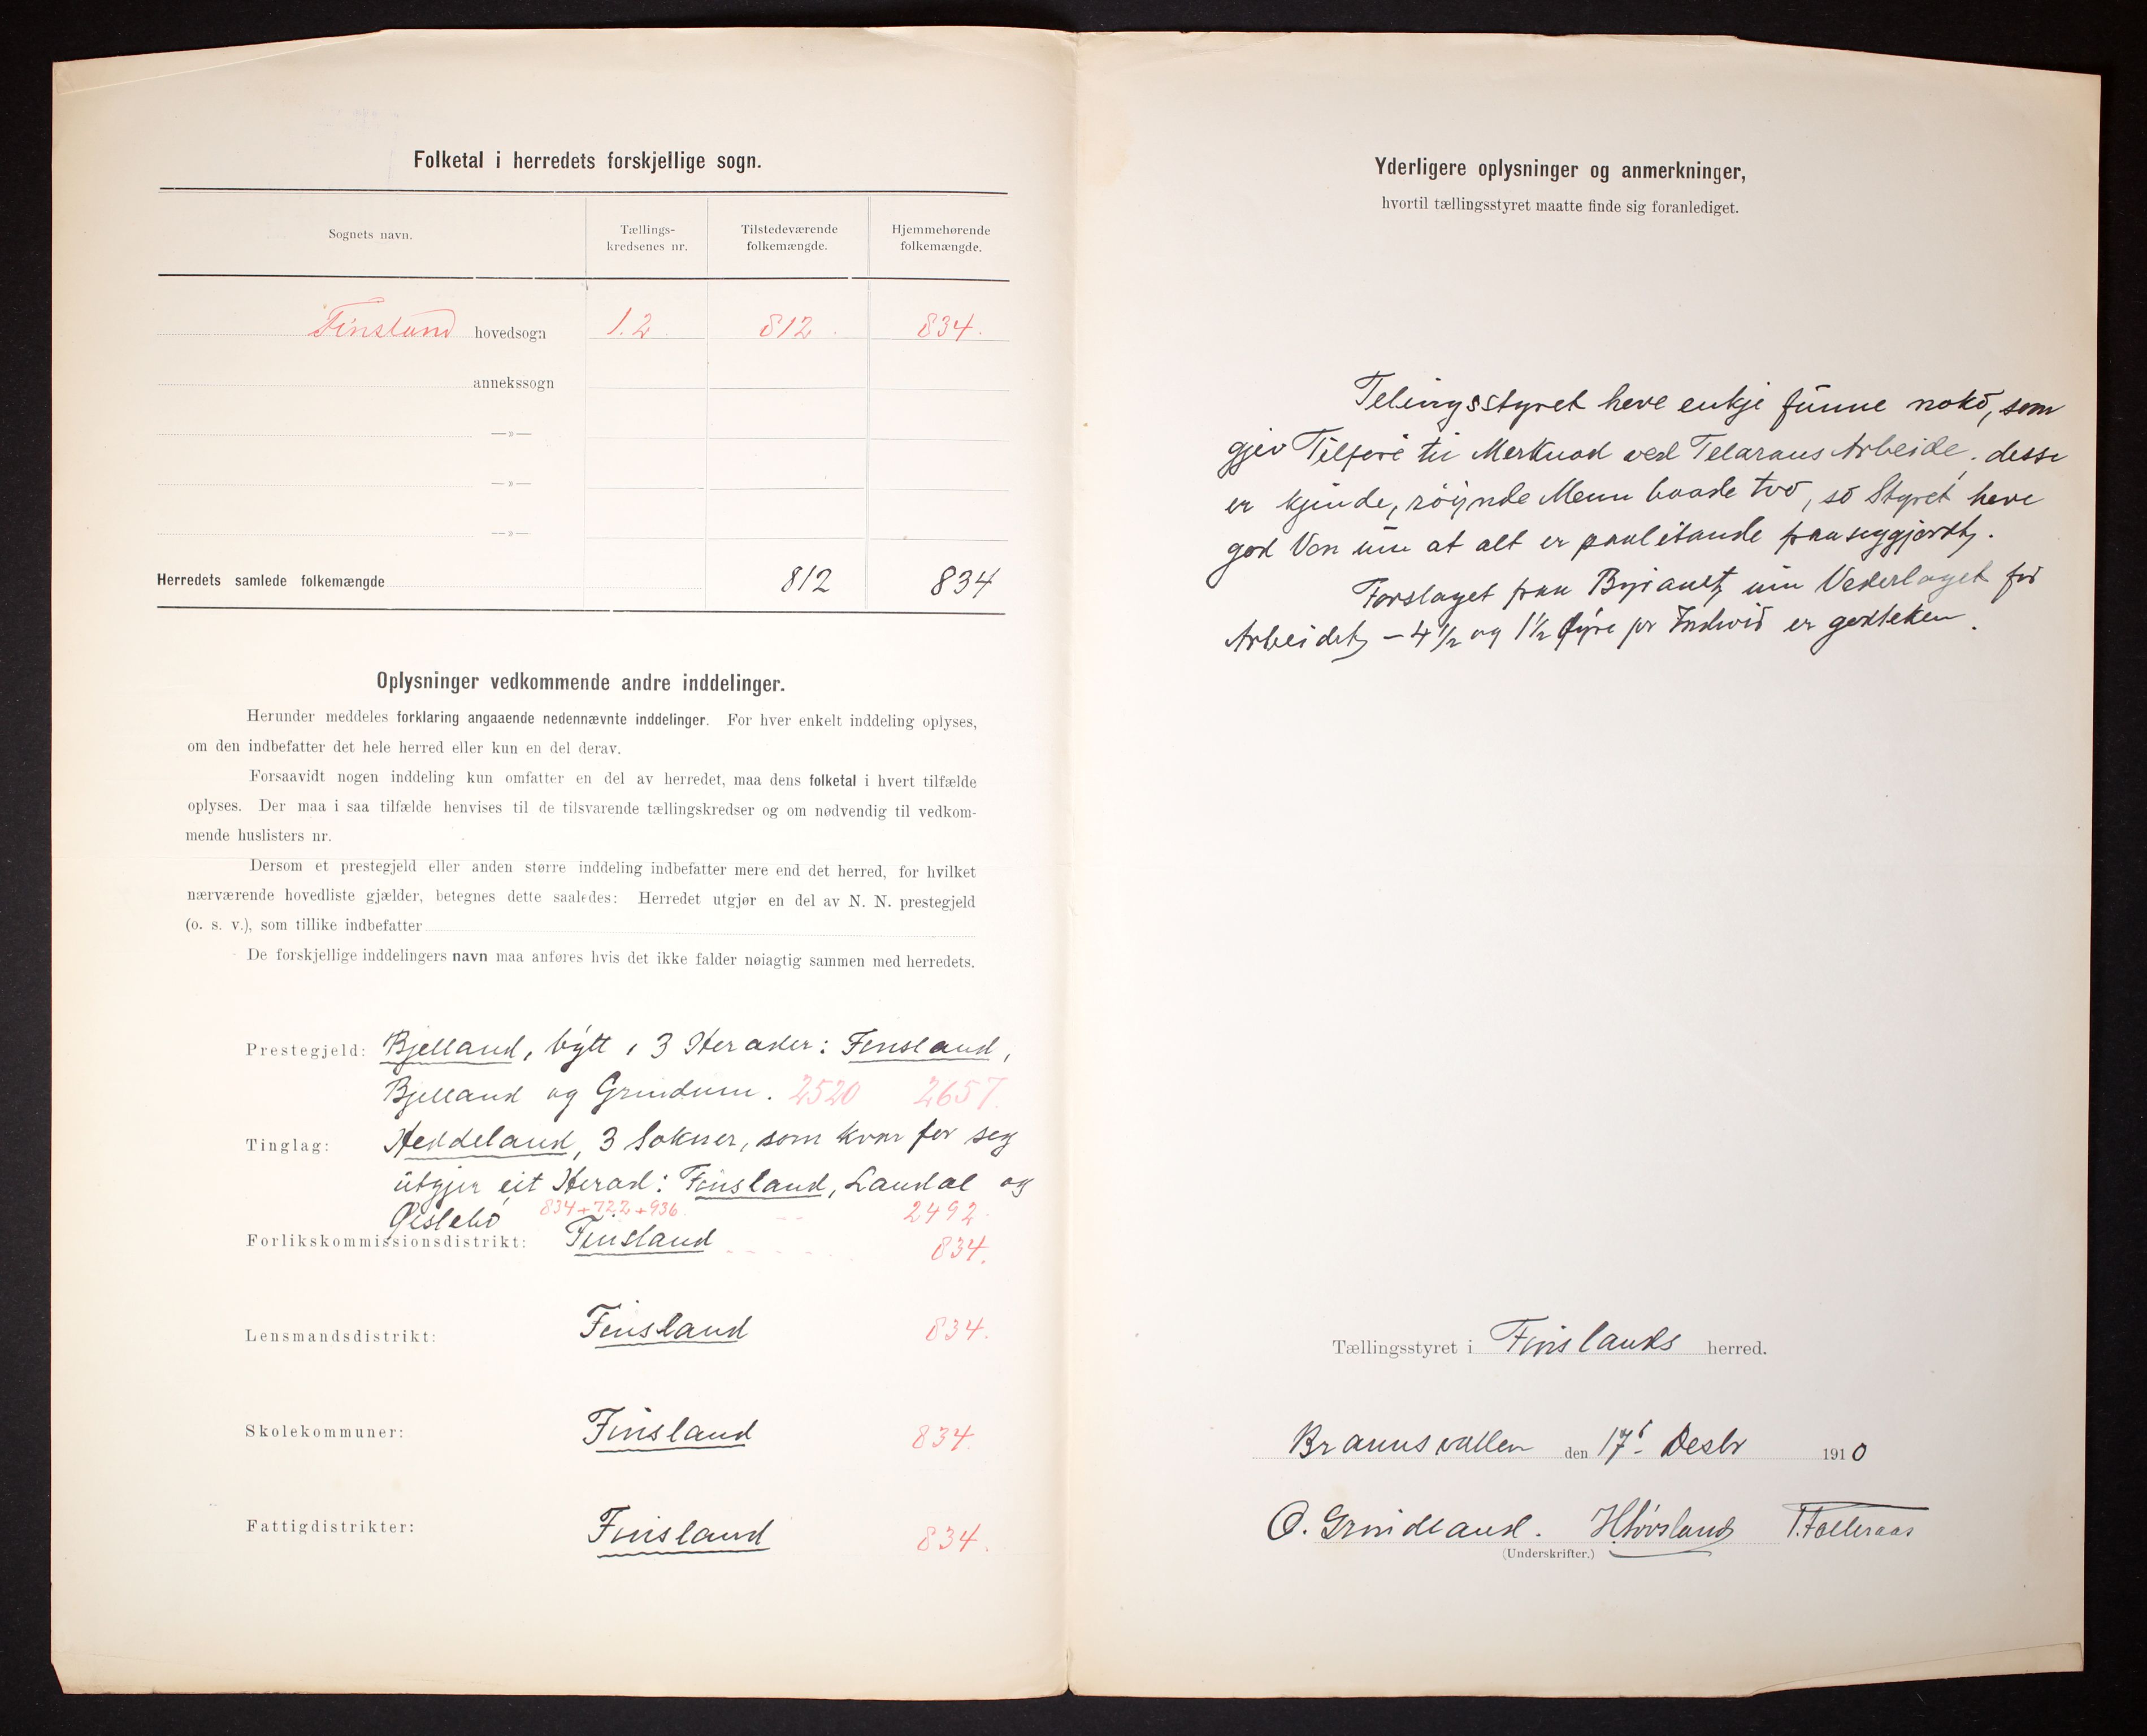 Folketal i herredets forskjellige sogn.
Sognets navn.
Tællings-
kredsenes nr.
Tilstedeværende
folkemængde.
Hjemmehørende
folkemængde.
Finsland hovedsogn 1.2 812. 834.
annekssogn
—»—
—»—
—»—
Herredets samlede folkemængde 812 834
Oplysninger vedkommende andre inddelinger.
Herunder meddeles forklaring angaaende nedennævnte inddelinger. For hver enkelt inddeling oplyses,
om den indbefatter det hele herred eller kun en del derav.
Forsaavidt nogen inddeling kun omfatter en del av herredet, maa dens folketal i hvert tilfælde
oplyses. Der maa i saa tilfælde henvises til de tilsvarende tællingskredser og om nødvendig til vedkom-
mende huslisters nr.
Dersom et prestegjeld eller anden større inddeling indbefatter mere end det herred, for hvilket
nærværende hovedliste gjælder, betegnes dette saaledes: Herredet utgjør en del av N. N. prestegjeld
(o. s. v.), som tillike indbefatter
De forskjellige inddelingers navn maa anføres hvis det ikke falder nøiagtig sammen med herredets.
Prestegjeld: Bjelland, bytt i 3 Herader: Finsland,
Bjelland og Grindum. 2520 2657.
Tinglag: Heddeland, 3 Sokner, som kvar for seg
utgjer eit Herad: Finsland, Laudal og
Øislebö 834+722+936. 2492.
Forlikskommissionsdistrikt: Finsland 834.
Lensmandsdistrikt: Finsland 834.
Skolekommuner: Finsland 834.
Fattigdistrikter: Finsland 834.
Yderligere oplysninger og anmerkninger,
hvortil tællingsstyret maatte finde sig foranlediget.
Telingsstyret heve enkje funne noko, som
gjev Tilføre til Merknad ved Telarans Arbeide, desse
er kjende, röynde Menn baade tvo, so Styret heve
god Von um at alt er paalitande fraaseggjordt.
Forslaget fraa Byraaet um Vederlaget for
Arbeidet – 4 1/2 og 1 1/2 Öyre pr Individ er godteken.
Tællingsstyret i Finslands herred.
Braunsvallen den 17' Desbr 1910
O. Grindland. H Hövsland T. Falleraas
(Underskrifter.)